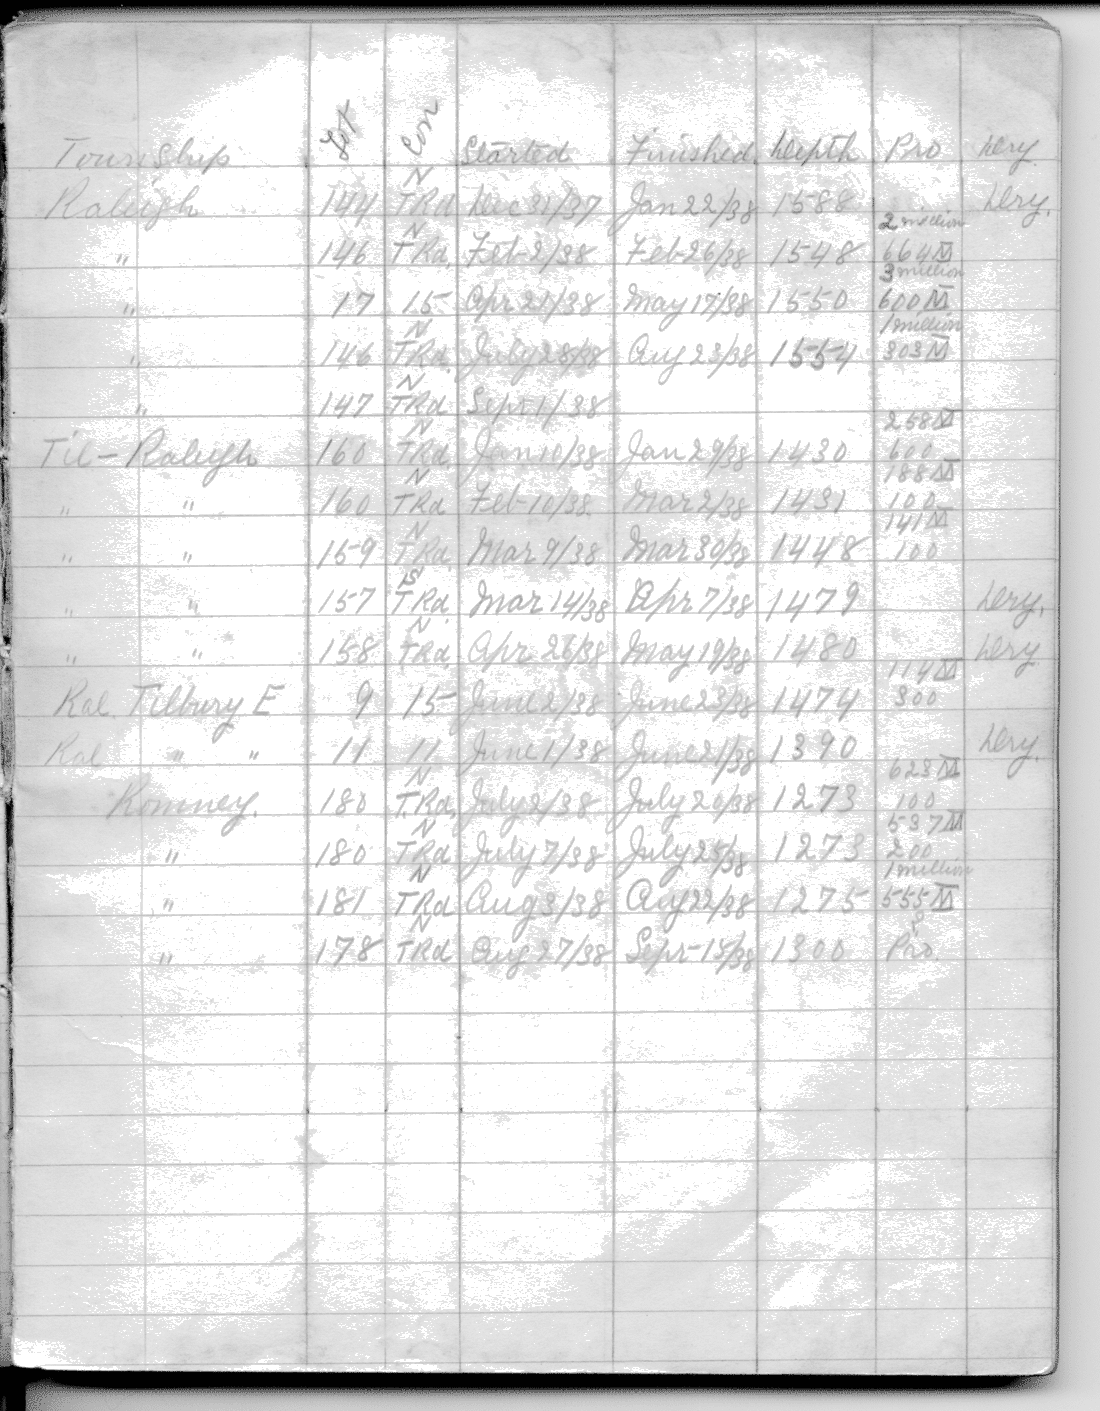 Township Lot Con Started Finished Depth Pro Dry
Raleigh 144 N T Rd Dec 31/37 Jan 22/38 1588 Dry.
" 146 N T Rd. Feb 2/38 Feb 26/38 1548 2 million 664 M
" 17 15 Apr 21/38 May 17/38 1550 3 million 600 M
" 146 N T Rd. July 28/38 Aug 23/38 1554 1 million 303 M
" 147 N T Rd Sept 1/38
Til - Raleigh 160 N T Rd. Jan 10/38 Jan 29/38 1430 258 M 600
" " 160 N T Rd Feb 10/38 Mar 2/38 1431 188 M 100
" " 159 N T Rd. Mar 9/38 Mar 30/38 1448 141 M 100
" " 157 S T Rd. Mar 14/38 Apr 7/38 1479 Dry.
" " 158 N T Rd Apr 26/38 May 19/38 1480 Dry
Ral. Tilbury E 9 15 June 2/38 June 23/38 1474 114 M 300
Ral " " 11 11 June 1/38 June 21/38 1390 Dry.
Romney. 180 N T. Rd. July 2/38 July 20/38 1273 623 M 100
" 180 N T Rd July 7/38 July 25/38 1273 537 M 200
" 181 N T Rd Aug 3/38 Aug 22/38 1275 1 million 555 M
" 178 N T Rd Aug 27/38 Sept 15/38 1300 Pro.